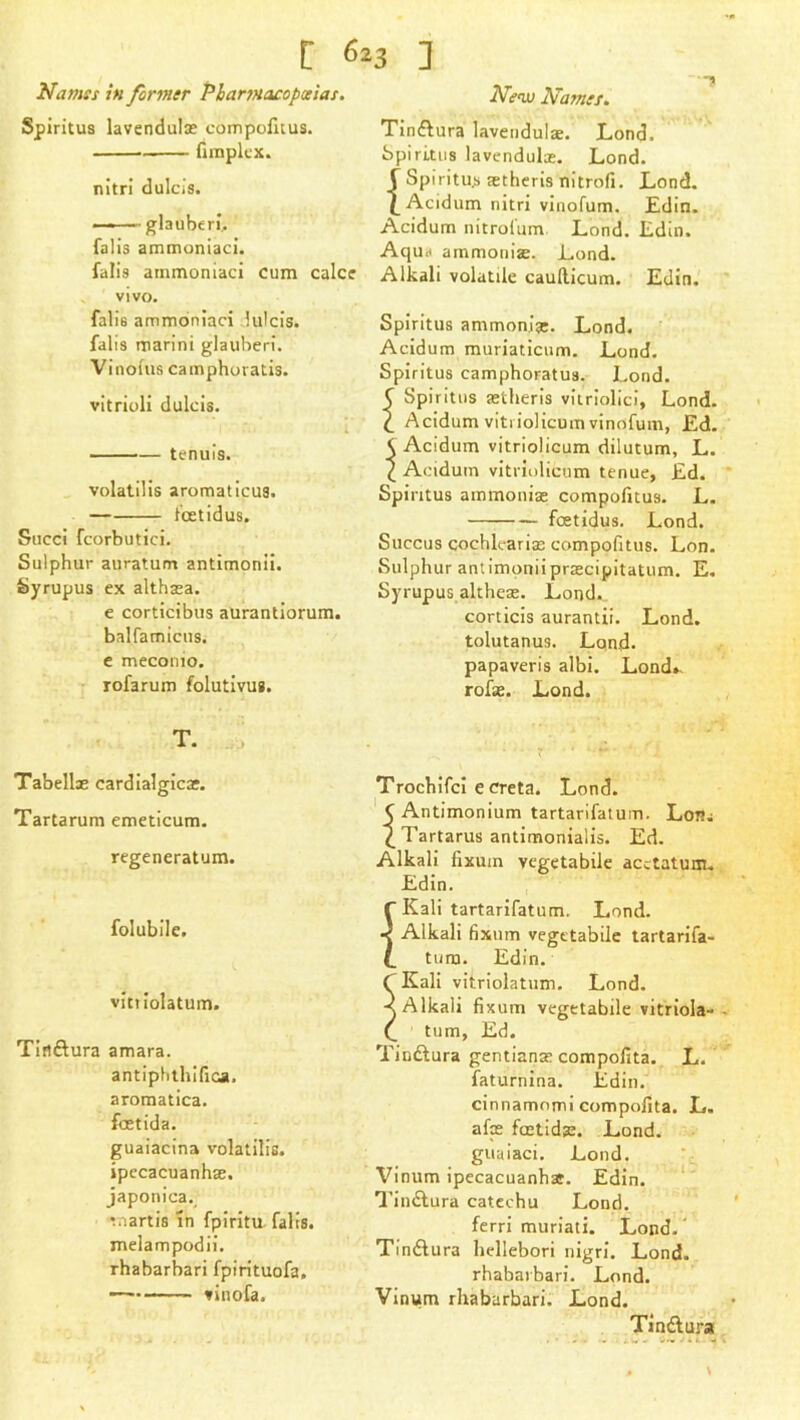 [ 623 ]
Names in former Pharmacopœias.
Spiritus lavendulæ compoſitus.
——— ſimplex.
nitri dulcis.
—— glauberi.
ſalis ammoniaci.
ſalis ammoniaci cum calce
vivo.
ſalis ammoniaci dulcis.
ſalis marini glauberi.
Vinoſus camphoratis.
vitrioli dulcis.
——— tenuis.
volatilis aromaticus.
——— fœtidus.
Succi ſcorbutici.
Sulphur auratum antimonii.
Syrupus ex althæa.
e corticibus aurantiorum.
balſamicus.
e meconio.
roſarum ſolutivus.
T.
Tabellæ cardialgicæ.
Tartarum emeticum.
regeneratum.
ſolubile.
vitriolatum.
Tinctura amara.
antiphthiſica.
aromatica.
fœtida.
guaiacina volatilis.
ipecacuanhæ.
japonica.
martis in ſpiritu ſalis.
melampodii.
rhabarbari ſpirituoſa.
——— vinoſa.
New Names.
Tinctura lavendulæ. Lond.
Spiritus lavendulæ. Lond.
{ Spiritus ætheris nitroſi. Lond.
Acidum nitri vinoſum. Edin.
Acidum nitroſum Lond. Edin.
Aqua ammoniæ. Lond.
Alkali volatile cauſticum. Edin.
Spiritus ammoniæ. Lond.
Acidum muriaticum. Lond.
Spiritus camphoratus. Lond.
{ Spiritus ætheris vitriolici, Lond.
Acidum vitriolicum vinoſum, Ed.
{ Acidum vitriolicum dilutum, L.
Acidum vitriolicum tenue, Ed.
Spiritus ammoniæ compoſitus. L.
——— fœtidus. Lond.
Succus cochleariæ compoſitus. Lon.
Sulphur antimonii præcipitatum. E.
Syrupus altheæ. Lond.
corticis aurantii. Lond.
tolutanus. Lond.
papaveris albi. Lond.
roſæ. Lond.
Trochiſci e creta. Lond.
{ Antimonium tartariſatum. Lon.
Tartarus antimonialis. Ed.
Alkali fixum vegetabile acetatum.
Edin.
{ Kali tartariſatum. Lond.
Alkali fixum vegetabile tartariſa-
tum. Edin.
{ Kali vitriolatum. Lond.
Alkali fixum vegetabile vitriola-
tum, Ed.
Tinctura gentianæ compoſita. L.
ſaturnina. Edin.
cinnamomi compoſita. L.
aſæ fœtidæ. Lond.
guaiaci. Lond.
Vinum ipecacuanhæ. Edin.
Tinctura catechu Lond.
ferri muriati. Lond.
Tinctura hellebori nigri. Lond.
rhabarbari. Lond.
Vinum rhabarbari. Lond.
Tinctura